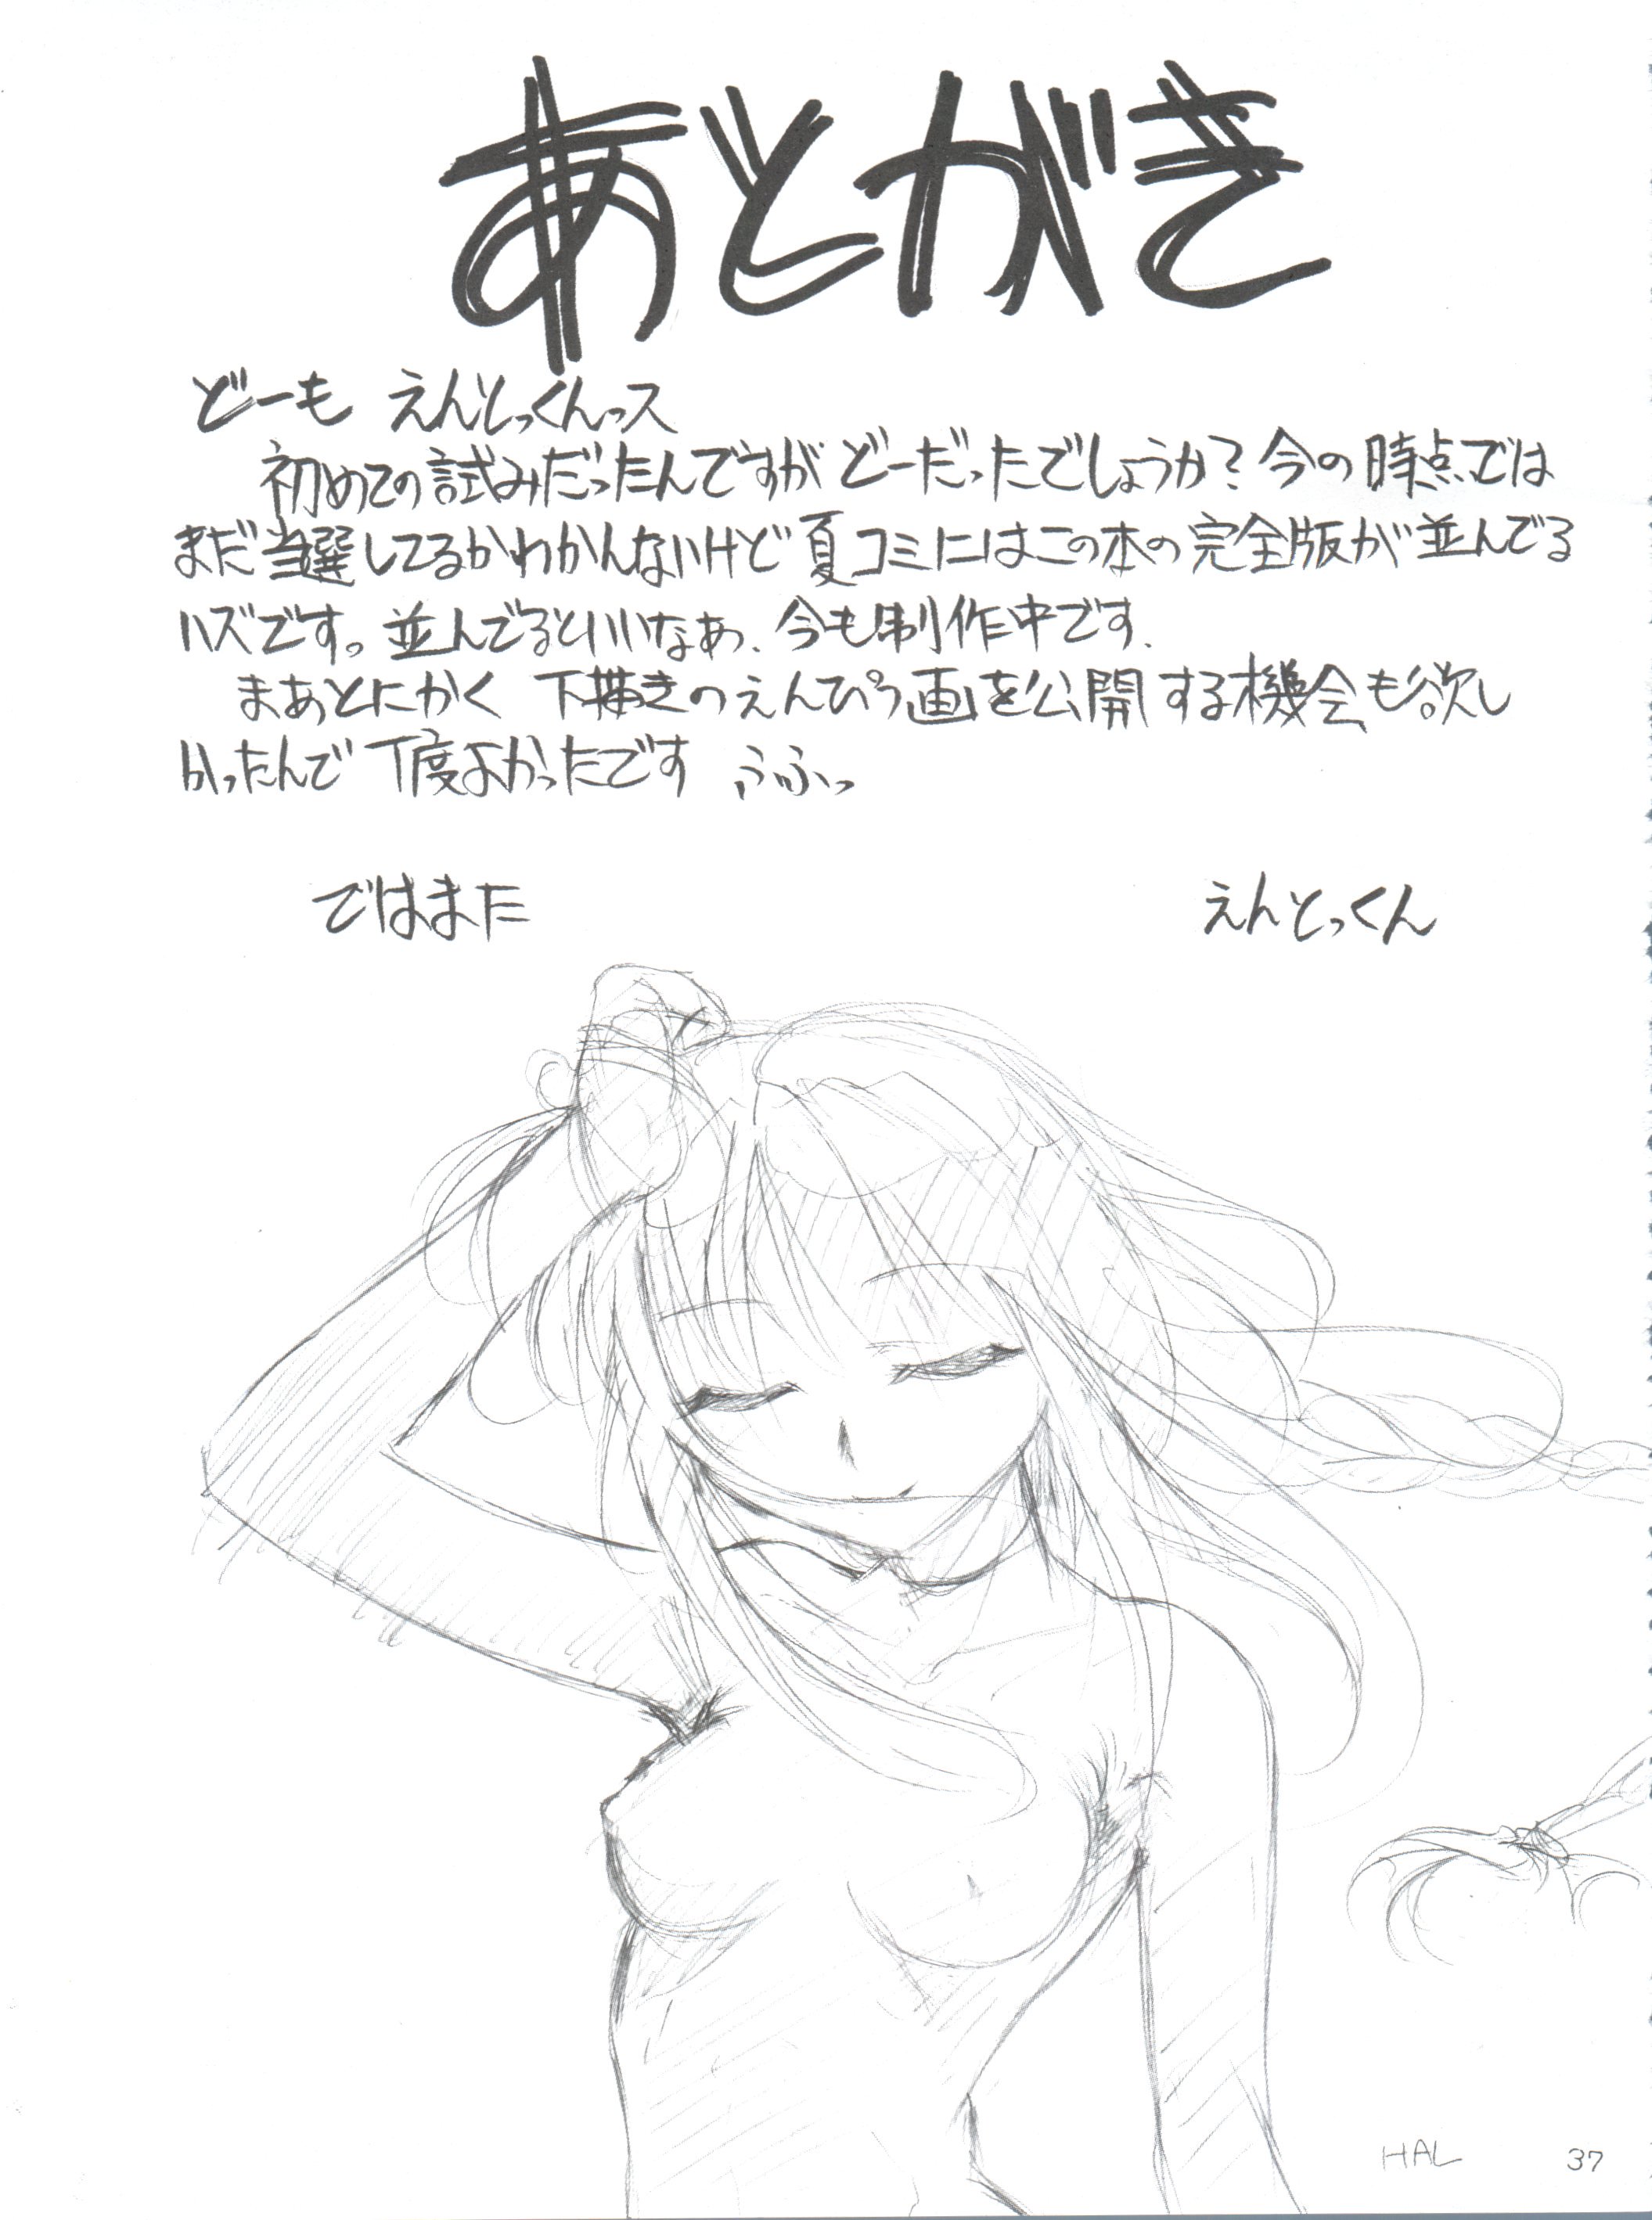 あとがき
どーも えんとっくんっス
初めての試みだったんですが どーだったでしょうか? 今の時点では
まだ当選してるかわかんないけど 夏コミにはこの本の完全版が並んでる
ハズです。並んでるといいなあ、今も制作中です、
まあとにかく 下描きのえんぴつ画を公開する機会も欲し
かったんで 丁度よかったです うふふっ
ではまた
えんとっくん
HAL
37